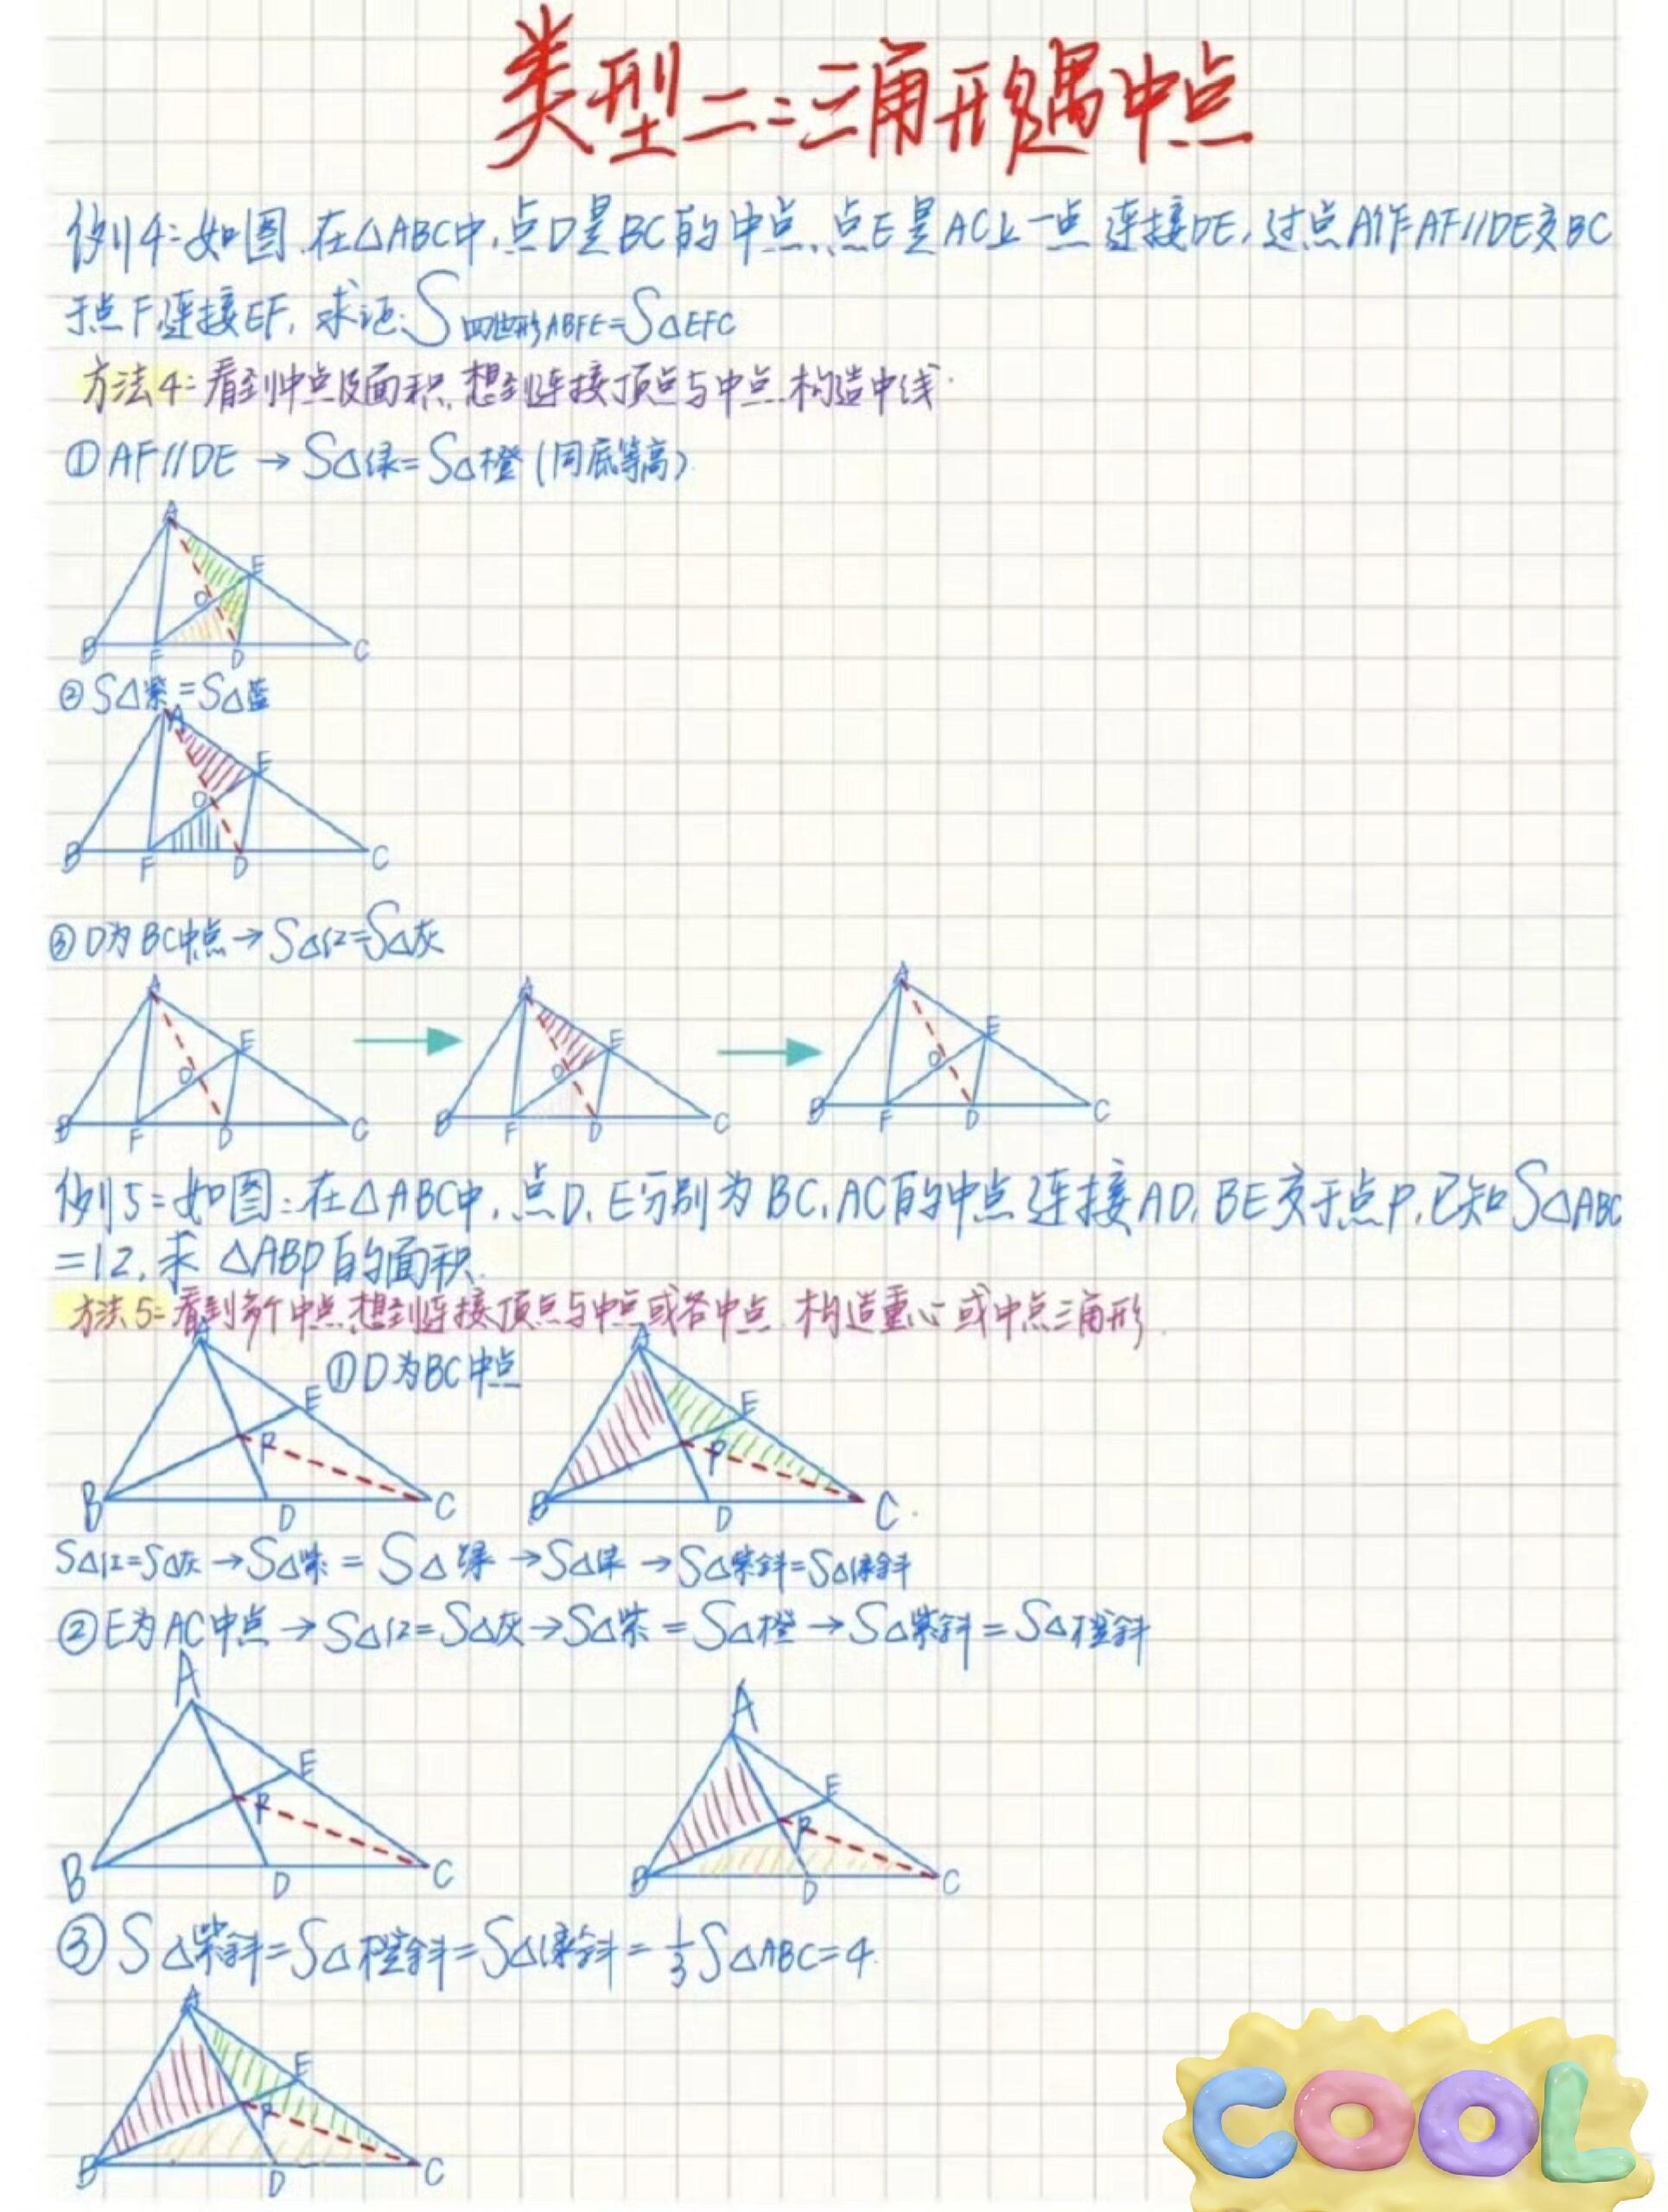 类型二:三角形遇中点
例4:如图,在△ABC中,点D是BC的中点,点E是AC上一点 连接DE,过点A作AF//DE交BC
于点F,连接EF,求证:S四边形ABFE=S△EFC
方法4:看到中点及面积,想到连接顶点与中点,构造中线.
①AF//DE → S△绿=S△橙(同底等高)
A
E
O
B F D C
②S△紫=S△蓝
A
E
O
B F D C
③D为BC中点→S△红=S△灰
A A A
E E E
O O O
B F D C B F D C B F D C
例5:如图:在△ABC中,点D,E分别为BC,AC的中点 连接AD,BE交于点P,已知S△ABC
=12,求△ABP的面积.
方法5:看到多个中点,想到连接顶点与中点或各中点,构造重心或中点三角形.
A ①D为BC中点 A
E E
P P
B D C B D C.
S△红=S△灰→S△紫=S△绿→S△→S△紫斜=S△绿斜
②E为AC中点→S△红=S△灰→S△紫=S△橙→S△紫斜=S△橙斜
A A
E E
P P
B D C B D C
③S△紫斜=S△橙斜=S△绿斜=1/3S△ABC=4.
A
E
P
B D C
COOL